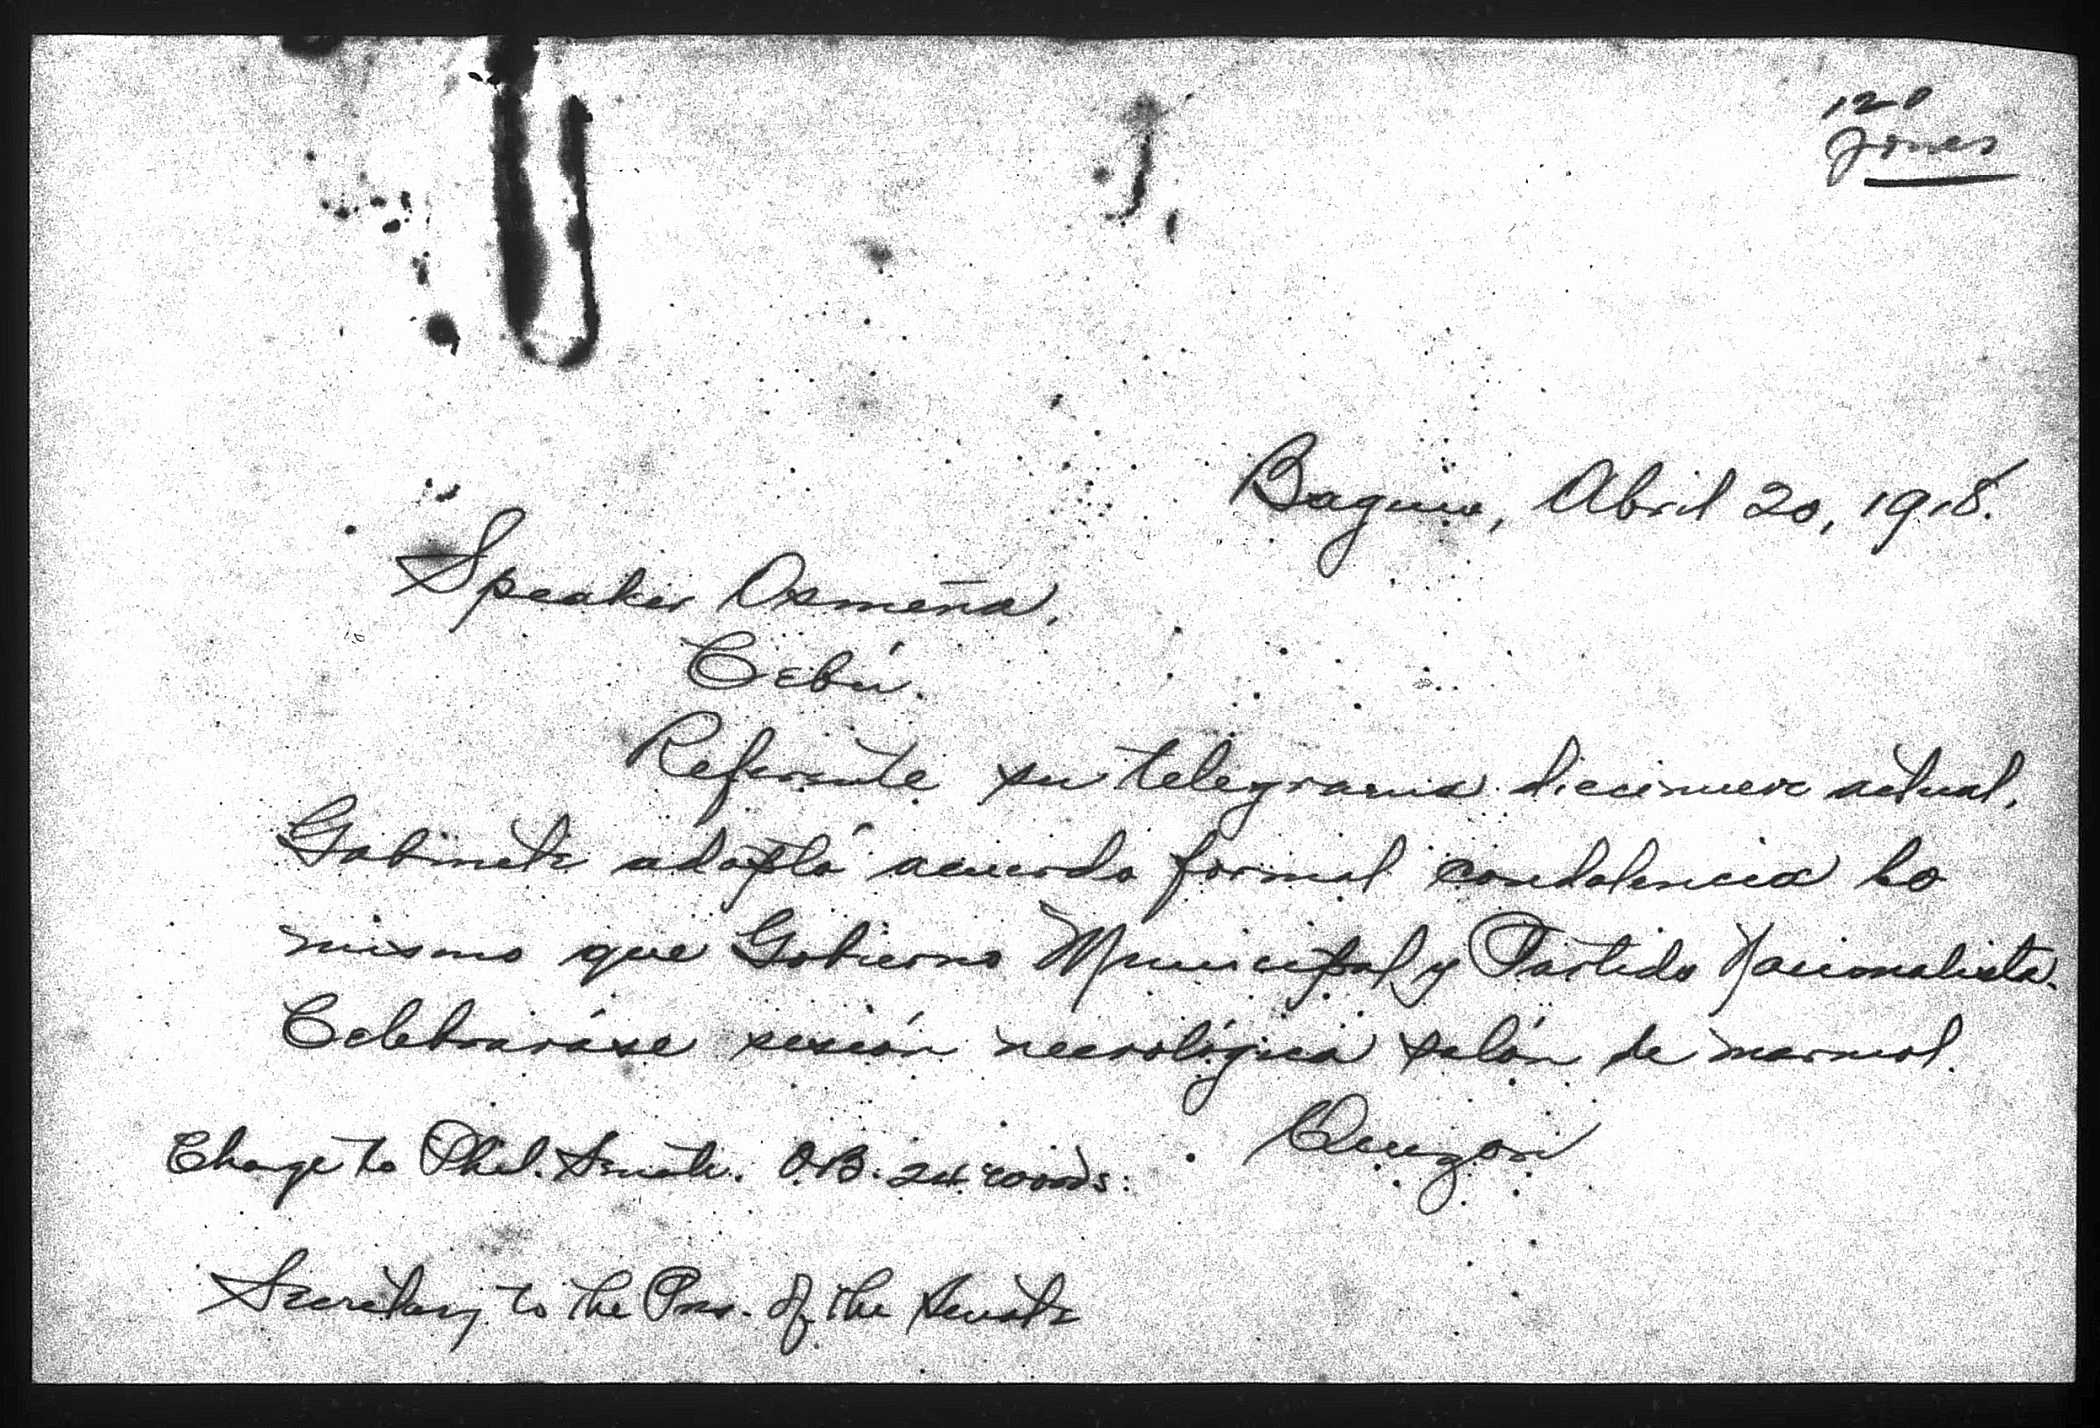 120
Jones
Baguio, Abril 20, 1918.
Speaker Osmeña,
Cebú.
Referente su telegrama diecinueve actual.
Gabinete adoptó acuerdo formal condolencia lo
mismo que Gobierno Municipal y Partido Nacionalista.
Celebraráse sesión necrológica salón de marmol.
Quezon
Charge to Phil. Senate. O.B. 24 words.
Secretary to the Pres. of the Senate